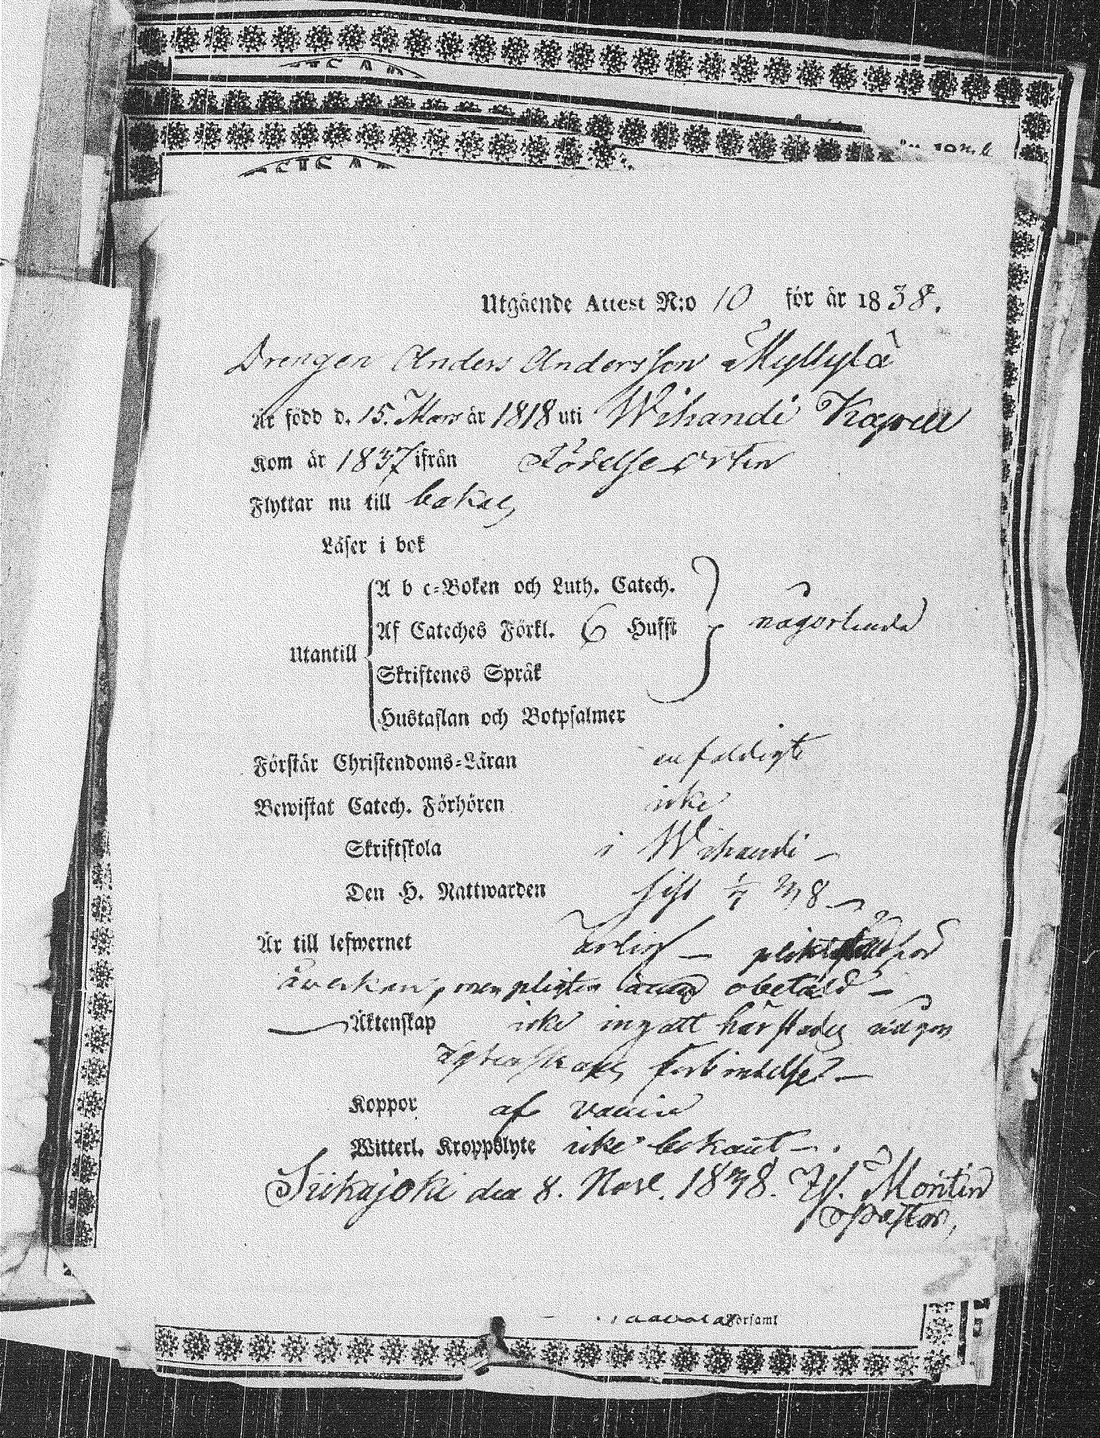 Utgående Attest N:o 10 för år 1838.
Drengen Anders Andersson Myllylä
Är född d. 15. Mars år 1818 uti Wihandi Kapell
Kom år 1837 ifrån Födelse orten
Flyttar nu till bakas,
Läser i bok
A b c-Boken och Luth. Catech.
Af Cateches Förkl. 6 Hufst någorlunda
Utantill
Skriftenes Språk
Hustaflan och Botpsalmer
Förstår Christendoms-Läran enfaldigt
Bewistat Catech. Förhören icke
Skriftskola i Wihandi –
Den H. Nattwarden sist 1/7 38 –
Är till lefwernet ärlig – för
åverkan, men pligten ännu obetald –
Äktenskap icke ingått härstädes någon
ägtenskaps förbindelse. –
Koppor af vaccin
Witterl. Kroppslyte icke bekant –.
Siikajoki den 8. Nov. 1838. W. Montin
Pastor,
församl